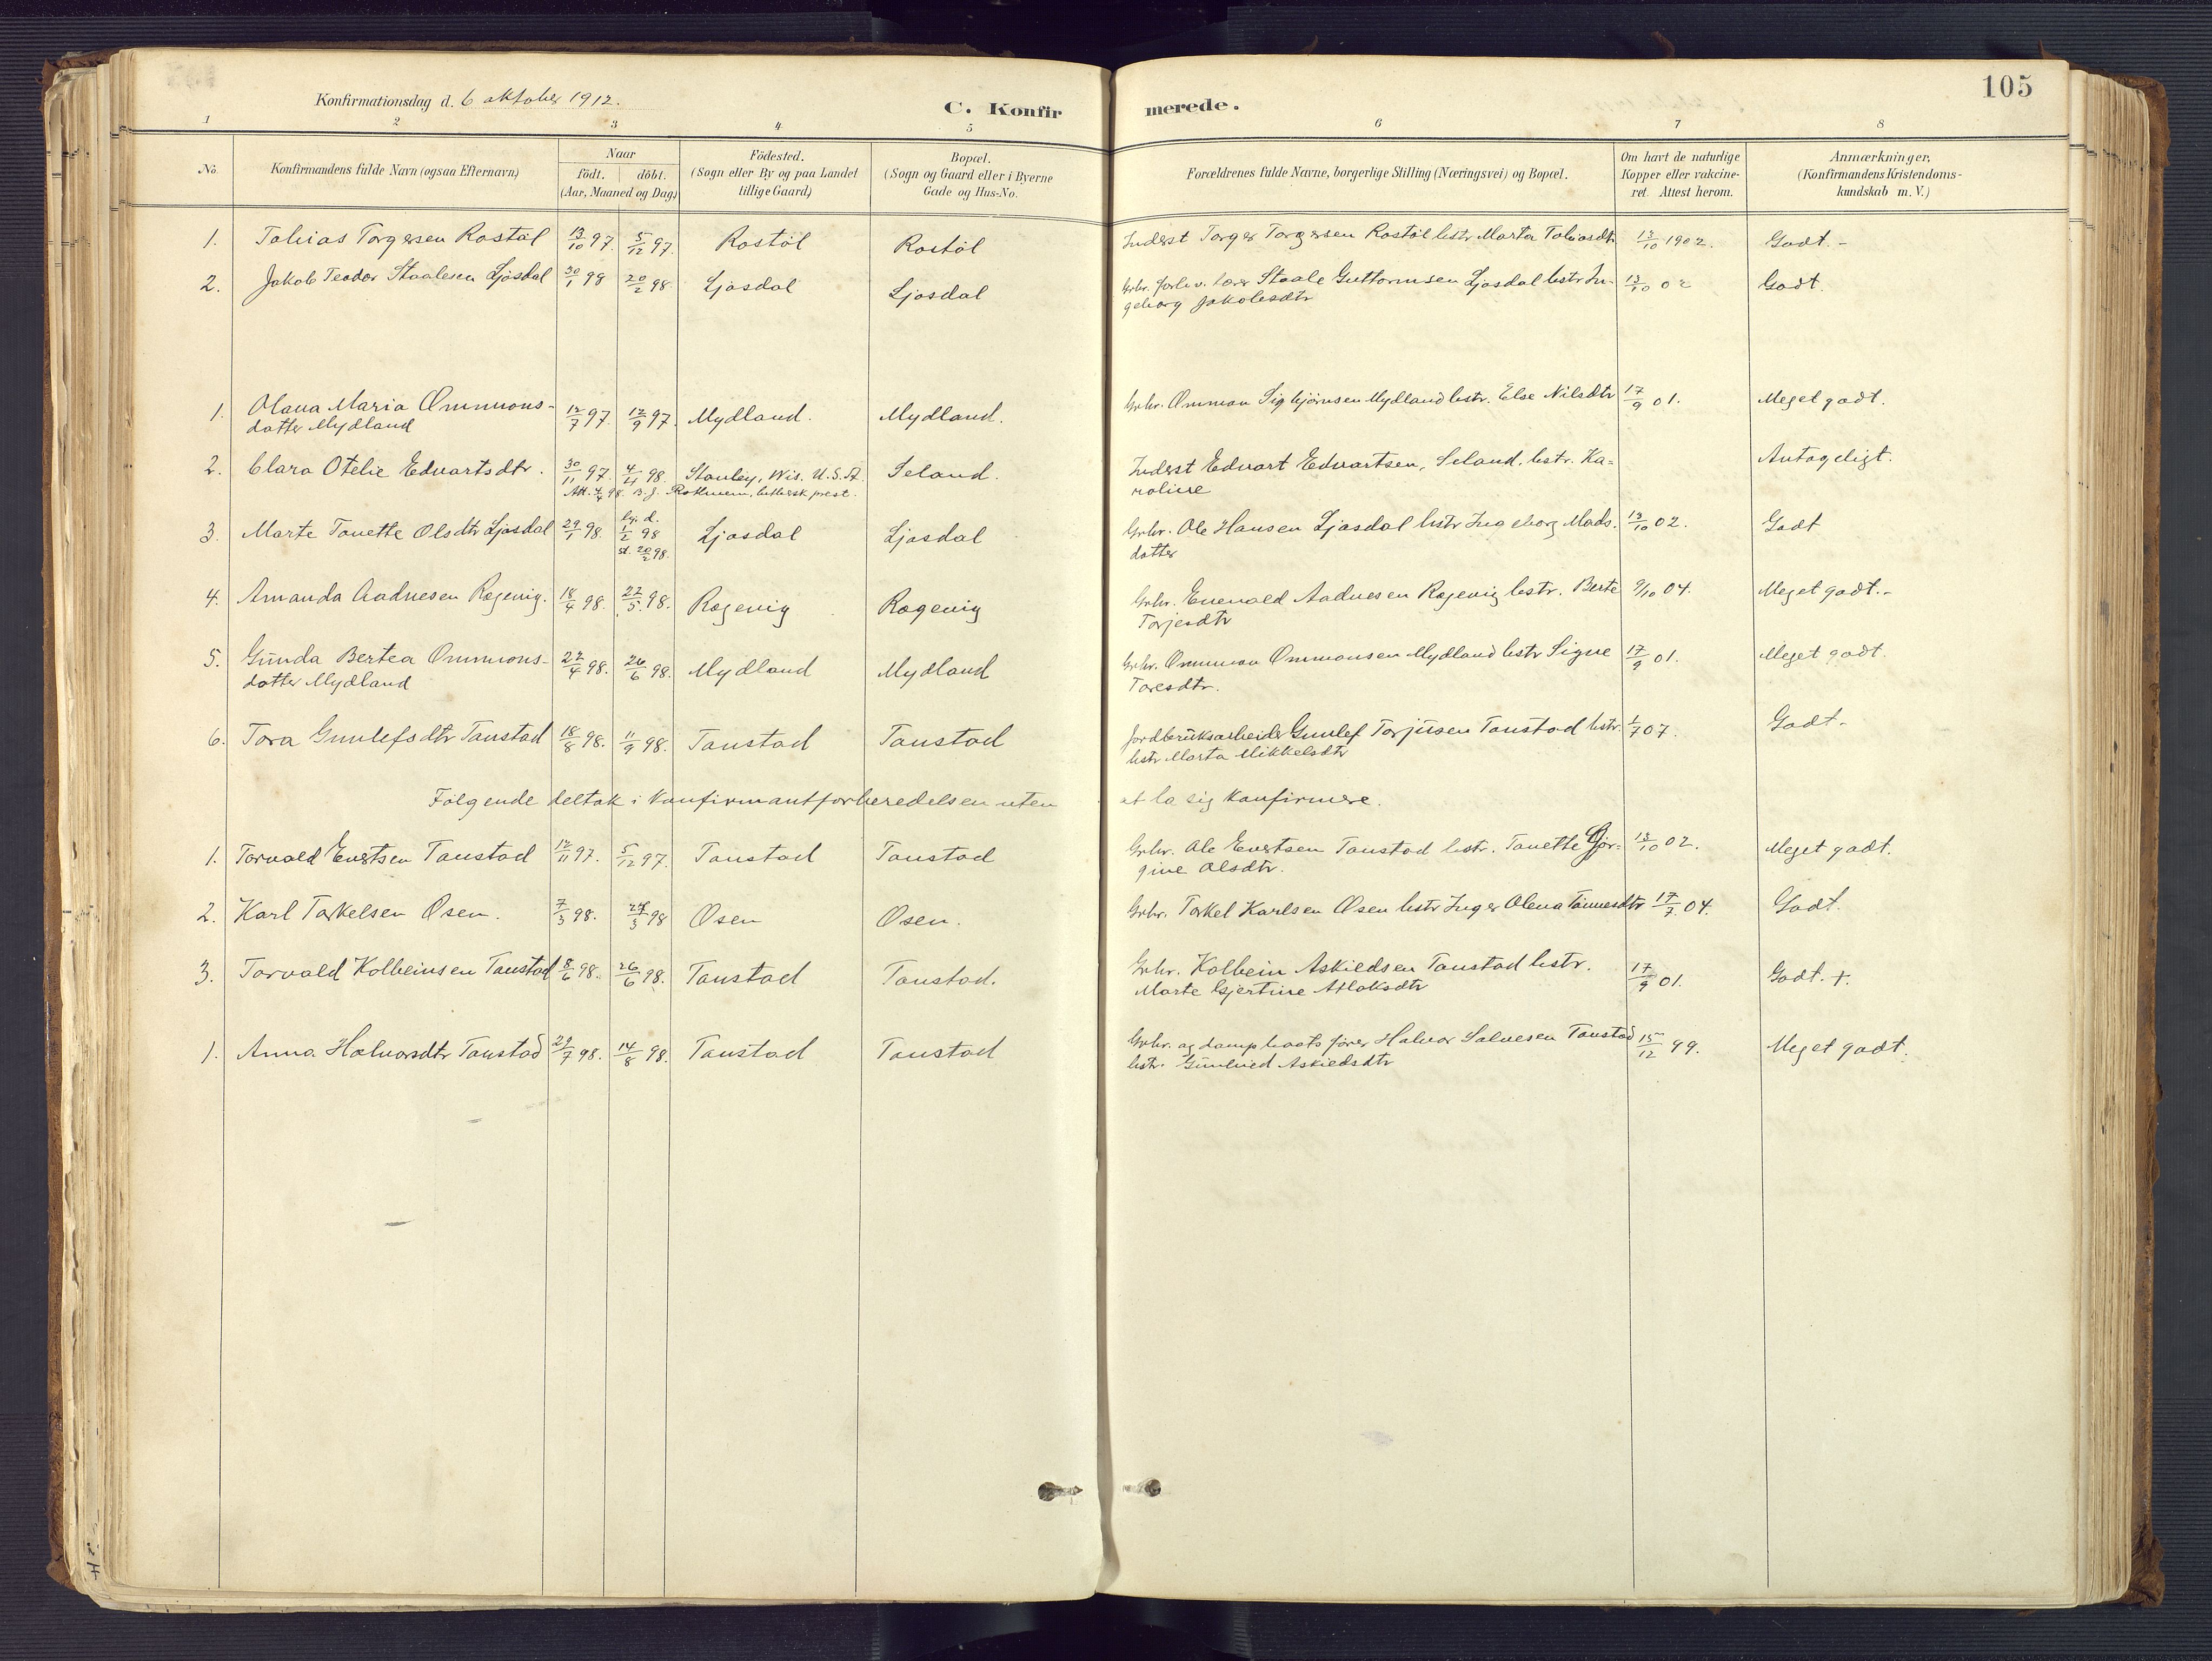 105
Konfirmationsdag d. 6 oktober 1912.
C. Konfirmerede.
1 2 3 4 5 6 7 8
No.
Konfirmandens fulde Navn (ogsaa Efternavn)
Naar
födt. döbt.
(Aar, Maaned og Dag)
Födested.
(Sogn eller By og paa Landet
tillige Gaard)
Bopæl.
(Sogn og Gaard eller i Byerne
Gade og Hus-No.
Forældrenes fulde Navne, borgerlige Stilling (Næringsvei) og Bopæl.
Om havt de naturlige
Kopper eller vakcine-
ret. Attest herom.
Anmærkninger.
(Konfirmandens Kristendoms-
kundskab m. V.)
1. Tobias Torgersen Rostöl 13/10 97. 5/12 97. Rostöl Rostöl Inderst Torger Torgersen Rostöl hstr Marta Tobiasdtr 13/10 1902. Godt.-
2. Jakob Teodor Staalesen Ljosdal 30/1 98 20/2 98. Ljosdal Ljosdal Grbr. forhv. lærer Staale Guttormsen Ljosdal hstr In-
geborg Jakobsdtr 13/10 02 Godt.
1. Olava Maria Ommons-
datter Mydland 12/7 97. 12/9 97. Mydland. Mydland. Grbr. Ommon Sigbjörnsen Mydland hstr. Else Nilsdtr 17/9 01. Meget godt.
2. Clara Otelie Edvartsdtr. 30/11 97. 4/4 98. Stanley, Wis. U.S.A. Seland. Inderst Edvart Edvartsen, Seland, hstr. Ka-
roline Antageligt.
Att. 4/4 98. B. J. Rothnem, luthersk prest.
3. Marte Tonette Olsdtr Ljosdal 29/1 98. hj. d.
1/2 98
st. 20/2 98. Ljosdal Ljosdal Grbr. Ole Hansen Ljosdal hstr Ingeborg Mads-
datter 13/10 02. Godt
4. Amanda Aadnesen Røgevig. 18/4 98. 22/5 98. Røgevig Røgevig Grbr. Enevald Aadnesen Røgevig hstr. Berte
Torjesdtr 9/10 04. Meget godt.-
5. Gunda Bertea Ommons-
datter Mydland 22/4 98. 26/6 98. Mydland Mydland Grbr. Ommon Ommonsen Mydland hstr Signe
Toresdtr. 17/9 01. Meget godt.
6. Tora Gunlefsdtr Tonstad 18/8 98. 11/9 98. Tonstad Tonstad Jordbruksarbeider Gunlef Torjusen Tonstad hstr.
hstr Marta Mikkelsdtr 1/7 07. Godt-
Følgende deltok i Konfirmantforberedelsen uten at la sig konfirmere.
1. Torvald Evertsen Tonstad 12/11 97. 5/12 97. Tonstad Tonstad Grbr. Ole Evertsen Tonstad hstr. Tonette Gjør-
gine Olsdtr. 13/10 02. Meget godt.
2. Karl Torkelsen Osen. 7/3 98. 27/3 98 Osen Osen. Grbr. Torkel Karlsen Osen hstr Inger Olena Tönnesdtr 17/7 04. Godt.
3. Torvald Kolbeinsen Tonstad 8/6 98. 26/6 98. Tonstad Tonstad. Grbr. Kolbein Askildsen Tonstad hstr.
Marte Gjertine Atlaksdtr 17/9 01. Godt. +.
1. Anna Halvorsdtr Tonstad 29/7 98. 14/8 98. Tonstad Tonstad Grbr. og dampbaatsfører Halvor Salvesen Tonstad
hstr. Gunhild Askildsdtr 15/12 99. Meget godt.